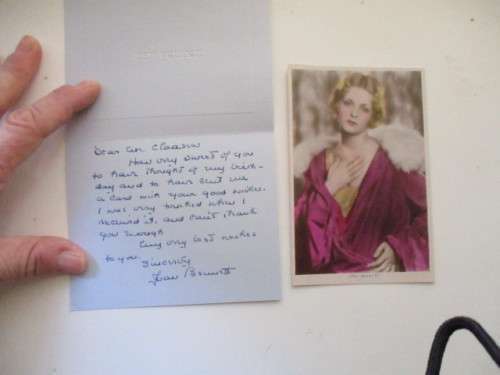 Dear Mr. Clason
How very sweet of you
to have thought of my birth-
day and to have sent me
a card with your good wishes.
I was very touched when I
received it, and can't thank
you enough
My very best wishes
to you.
Sincerely
Joan Bennett